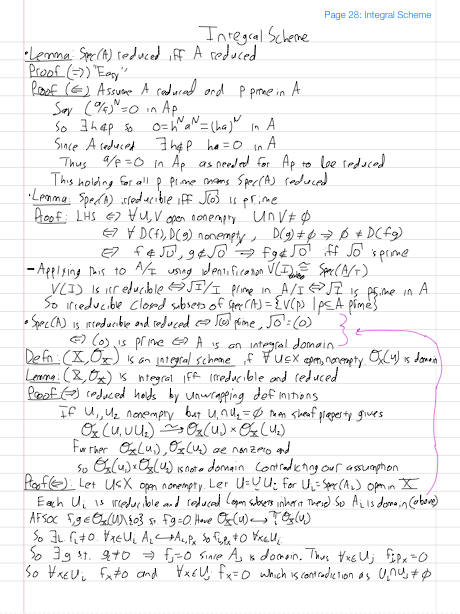 Page 28: Integral Scheme
Integral Scheme
• Lemma: Spec(A) reduced iff A reduced
Proof (⇒) "Easy"
Proof (⇐) Assume A reduced and p prime in A
Say (a/f)^N = 0 in A_p
So ∃h∉p so 0 = h^N a^N = (ha)^N in A
Since A reduced ∃h∉p ha = 0 in A
Thus a/f = 0 in A_p as needed for A_p to be reduced
This holding for all p prime means Spec(A) reduced
• Lemma: Spec(A) irreducible iff √(0) is prime
Proof: LHS ⇔ ∀U,V open nonempty U∩V ≠ ∅
⇔ ∀ D(f), D(g) nonempty, D(g) ≠ ∅ ⇒ ∅ ≠ D(fg)
⇔ f∉√0, g∉√0 ⇒ fg∉√0 iff √0 is prime
- Applying this to A/I using identification V(I) ≅ Spec(A/I)
V(I) is irreducible ⇔ √I/I prime in A/I ⇔ √I is prime in A
So irreducible closed subsets of Spec(A) = {V(p) | p⊆A prime}
• Spec(A) is irreducible and reduced ⇔ √(0) prime, √0 = (0)
⇔ (0) is prime ⇔ A is an integral domain
Defn: (X, O_X) is an integral scheme if ∀ U⊆X open, nonempty O_X(U) is domain
Lemma: (X, O_X) is integral iff irreducible and reduced
Proof (⇒) reduced holds by unwrapping definitions
If U₁, U₂ nonempty but U₁∩U₂ = ∅ then sheaf property gives
O_X(U₁∪U₂) ⥲ O_X(U₁) × O_X(U₂)
Further O_X(U₁), O_X(U₂) are nonzero and
so O_X(U₁) × O_X(U₂) is not a domain contradicting our assumption
Proof (⇐): Let U⊆X open nonempty. Let U = ∪ U_i for U_i = Spec(A_i) open in X
Each U_i is irreducible and reduced (open subsets inherit these) So A_i is domain (above)
AFSOC f,g∈O_X(U)\{0} st fg=0. Have O_X(U) ↪ ∏ O_X(U_i)
So ∃i f_i ≠ 0 ∀x∈U_i A_i ↪ A_{i,p_x} so f_{i,p_x} ≠ 0 ∀x∈U_i
So ∃j s.t. g_j ≠ 0 ⇒ f_j = 0 since A_j is domain. Thus ∀x∈U_j f_{j,p_x} = 0
So ∀x∈U_i f_x ≠ 0 and ∀x∈U_j f_x = 0 which is contradiction as U_i∩U_j ≠ ∅